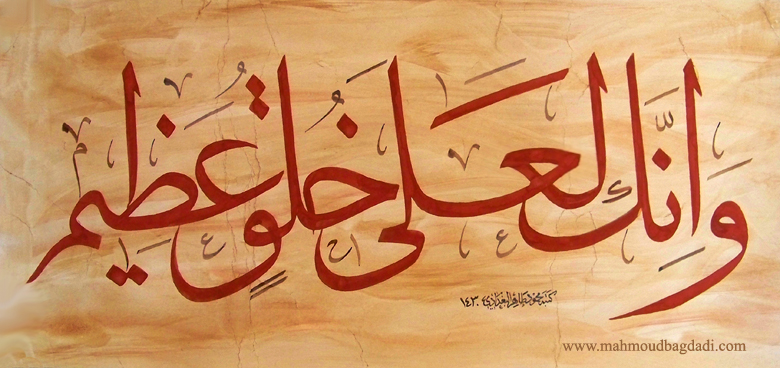 وَإِنَّكَ لَعَلَىٰ خُلُقٍ عَظِيمٍ
كتبه محمود طاهر البغدادي ١٤٣٠
www.mahmoudbagdadi.com